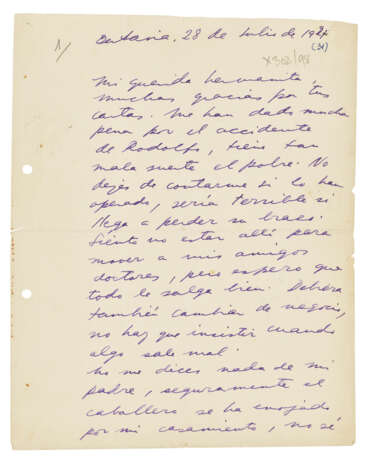 1/
Batavia, 28 de Julio de 193
(31)
Mi querida hermanita,
muchas gracias por tus
cartas. Me han dado mucha
pena por el accidente
de Rodolfo, tiene tan
mala suerte el pobre. No
dejes de contarme si lo han
operado, sería terrible si
llega a perder su brazo.
Siento no estar allí para
mover a mis amigos
doctores, pero espero que
todo le salga bien. Debiera
también cambiar de negocio,
no hay que insistir cuando
algo sale mal.
No me dices nada de mi
padre, seguramente el
caballero se ha enojado
por mi casamiento, no sé